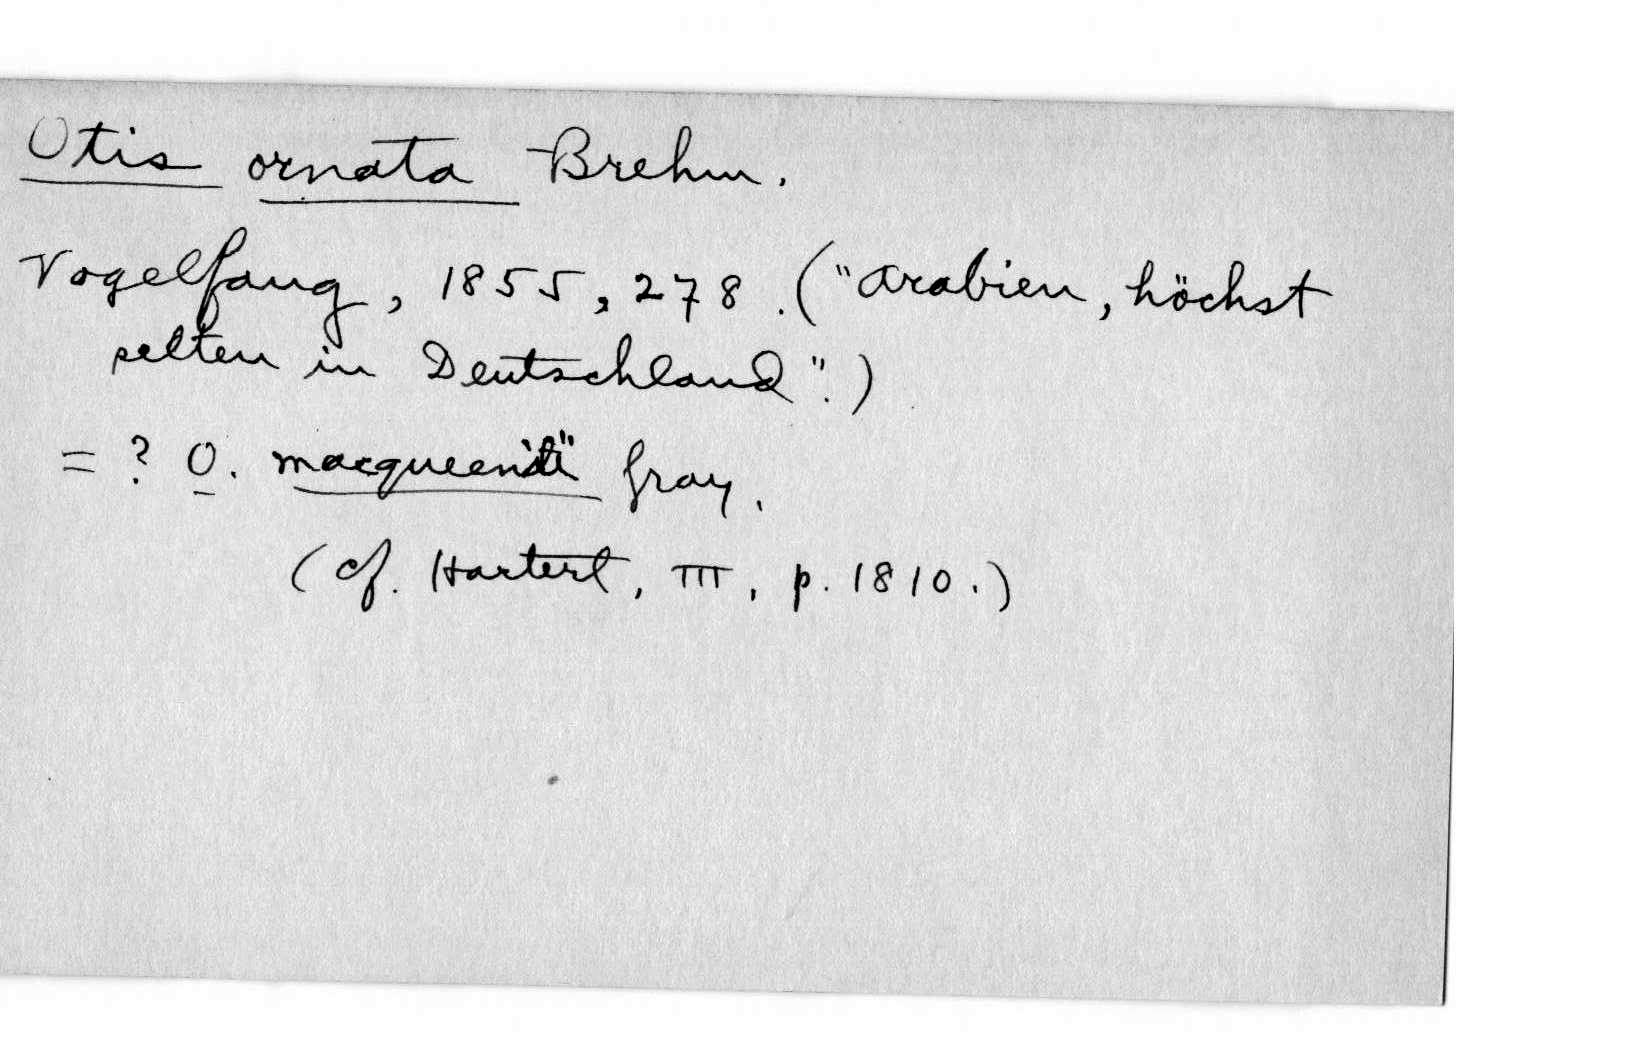 Otis ornata Brehm.
Vogelfang, 1855, 278. ("Arabien, höchst
selten in Deutschland".)
= ? O. macqueenii Gray.
(cf. Hartert, III, p. 1810.)